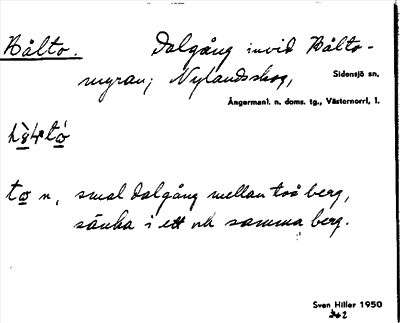 Bålto. Dalgång invid Bålto-
myran; Nylandsskog, Sidensjö sn.
Ångermanl. n. doms. tg., Västernorrl. l.
to n, smal dalgång mellan två berg,
sänka i ett och samma berg.
Sven Hiller 1950